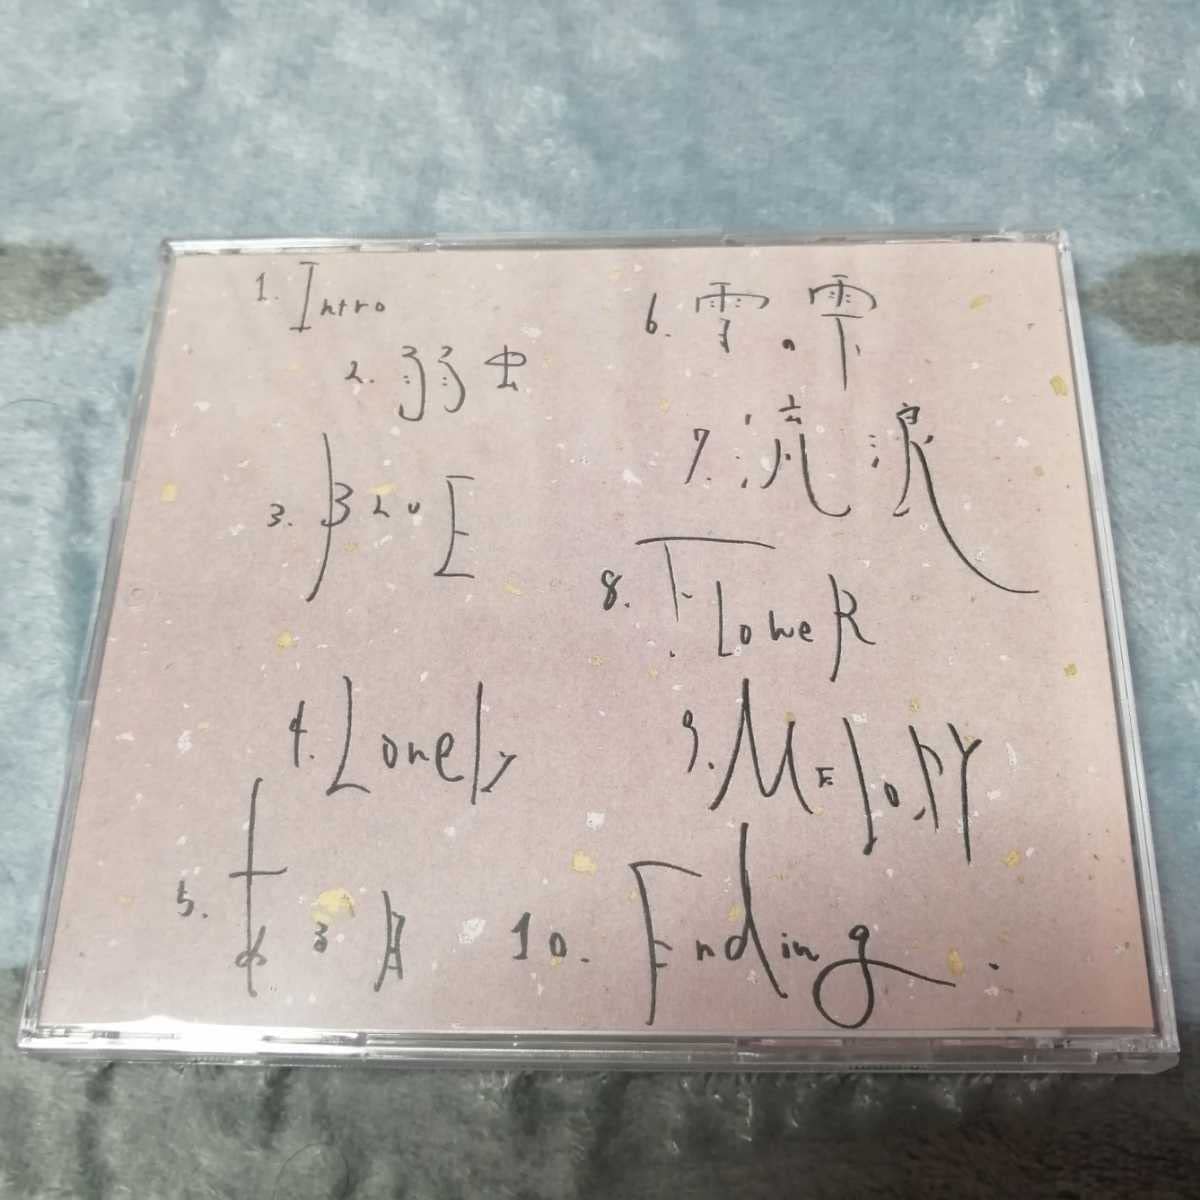 1. Intro
2. 弱虫
3. BLuE
4. Lonely
5. ある日
6. 雪の雫
7. 流浪
8. FLoweR
9. MEloDY
10. Ending.